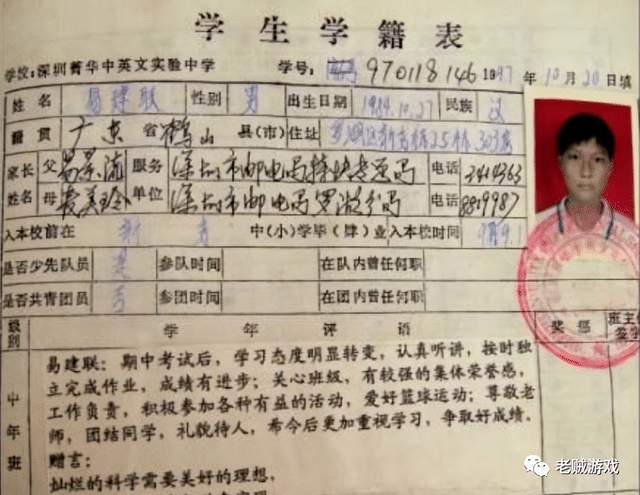 学生学籍表
学校:深圳菁华中英文实验中学 学号: 970118146 1997年10月20日填
姓名 易建联 性别 男 出生日期 1984.10.27 民族 汉
籍贯 广东省鹤山县(市) 住址
家长 父 易景流 服务 深圳市邮电局特快专递局 电话 3414363
姓名 母 麦美玲 单位 深圳市邮电局罗湖分局 电话 8819987
入本校前在 中(小)学毕(肄)业 入本校时间
是否少先队员 是 参队时间 在队内曾任何职
是否共青团员 否 参团时间 在团内曾任何职
级别 学年评语 奖惩 班主任签字
中年班
易建联:期中考试后,学习态度明显转变,认真听讲,按时独
立完成作业,成绩有进步;关心班级,有较强的集体荣誉感,
工作负责,积极参加各种有益的活动,爱好篮球运动;尊敬老
师,团结同学,礼貌待人,希今后更加重视学习,争取好成绩。
赠言:
灿烂的科学需要美好的理想,
老贼游戏